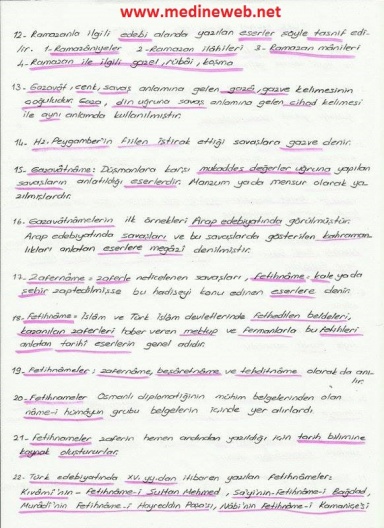 www.medineweb.net
12- Ramazanla ilgili edebi alanda yazılan eserler şöyle tasnif edi-
lir. 1- Ramazâniyeler 2- Ramazan ilâhileri 3- Ramazan mânileri
4- Ramazan ile ilgili gazel, rübâi, koşma
13- Gazavât, cenk, savaş anlamına gelen gazâ, gazve kelimesinin
çoğuludur. Gaza, din uğruna savaş anlamına gelen cihad kelimesi
ile aynı anlamda kullanılmıştır.
14- Hz. Peygamber'in fiilen iştirak ettiği savaşlara gazve denir.
15- Gazavâtnâme: Düşmanlara karşı mukaddes değerler uğruna yapılan
savaşların anlatıldığı eserlerdir. Manzum ya da mensur olarak ya-
zılmışlardır.
16- Gazavâtnâmelerin ilk örnekleri Arap edebiyatında görülmüştür.
Arap edebiyatında savaşları ve bu savaşlarda gösterilen kahraman-
lıkları anlatan eserlere megâzî denilmiştir.
17- Zafernâme = zaferle neticelenen savaşları, fetihnâme = kale ya da
şehir zaptedilmişse bu hadiseyi konu edinen eserlere denir.
18- Fetihnâme = İslâm ve Türk İslâm devletlerinde fethedilen beldeleri,
kazanılan zaferleri haber veren mektup ve fermanlarla bu fetihleri
anlatan tarihî eserlerin genel adıdır.
19- Fetihnâmeler; zafernâme, beşâretnâme ve tehditnâme olarak da anı-
lır
20- Fetihnameler Osmanlı diplomatiğinin mühim belgelerinden olan
nâme-i hümâyun grubu belgelerin içinde yer alırlardı.
21- Fetihnameler zaferin hemen ardından yazıldığı için tarih bilimine
kaynak oluştururlar.
22- Türk edebiyatında XV. yy.dan itibaren yazılan Fetihnâmeler:
Kıvâmî'nin - Fetihnâme-i Sultan Mehmed, Sa'yi'nin - Fetihnâme-i Bağdad,
Murâdî'nin Fetihnâme-i Hayreddin Paşa'sı, Nâbi'nin Fetihnâme-i Kamaniçe'si